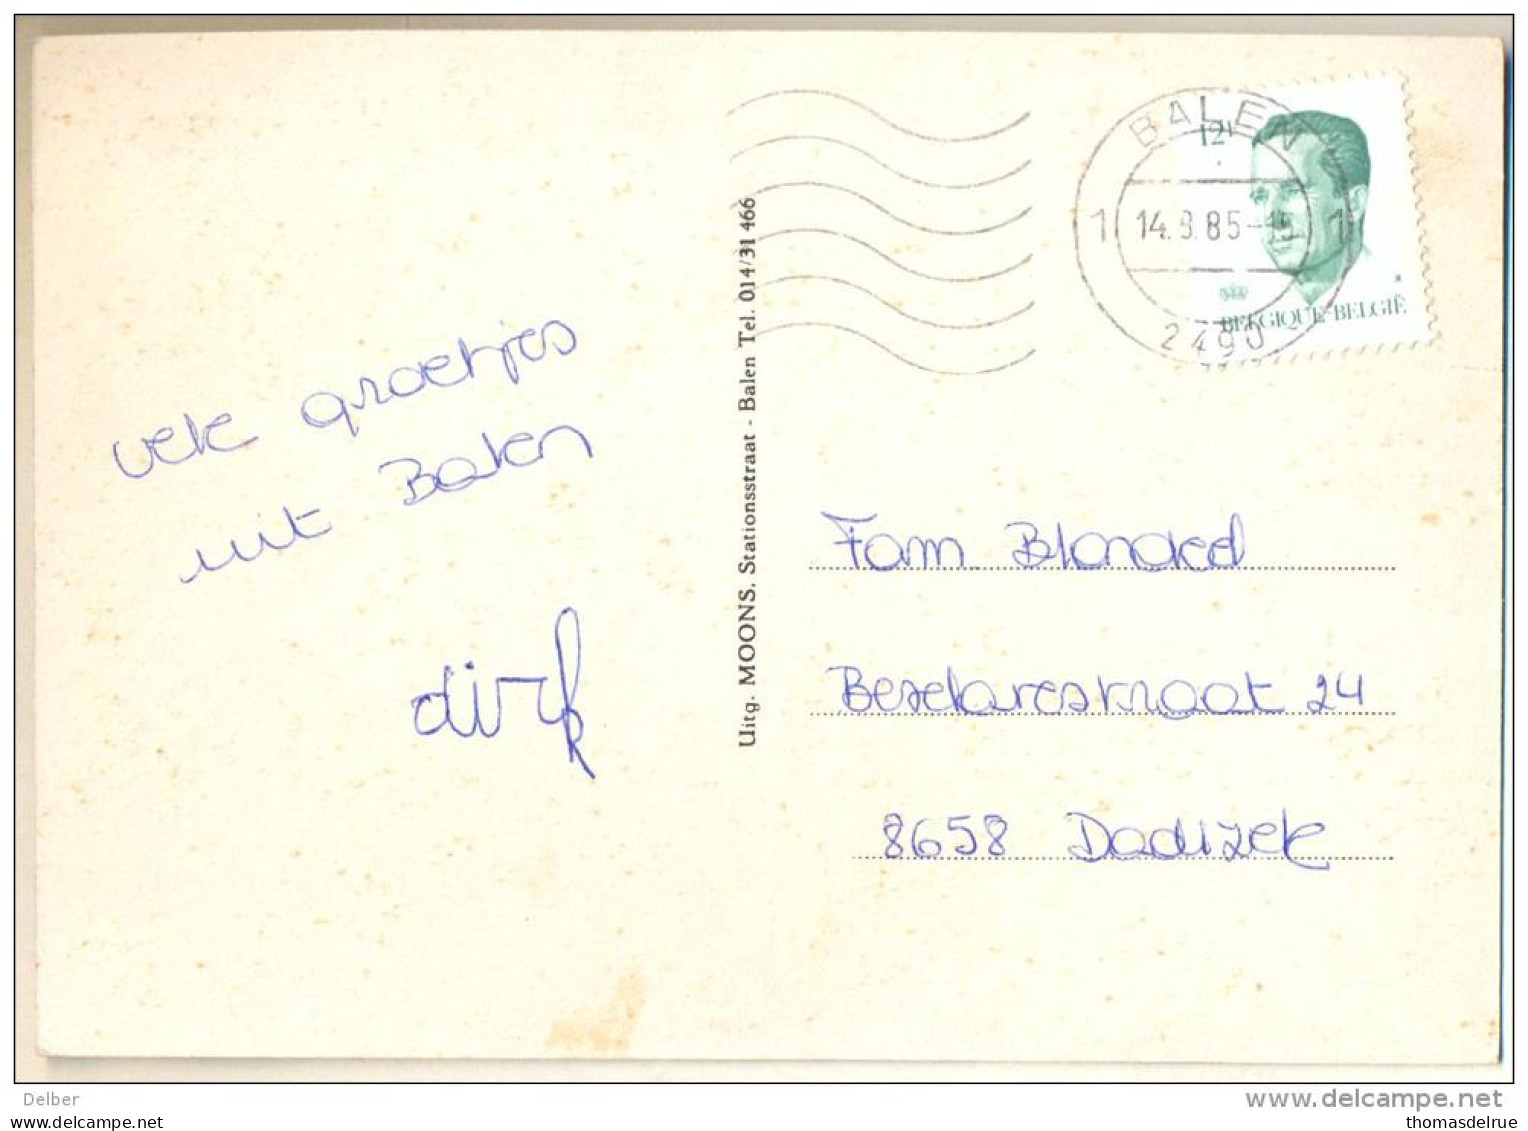 vele groetjes
uit Balen
dirk
Uitg. MOONS. Stationsstraat - Balen Tel. 014/31 466
BALEN
12F
1 14.9.85-15 1
BELGIQUE-BELGIË
2490
Fam Blondeel
Beselarestraat 24
8658 Dadizele
Delber
www.delcampe.net
thomasdelrue